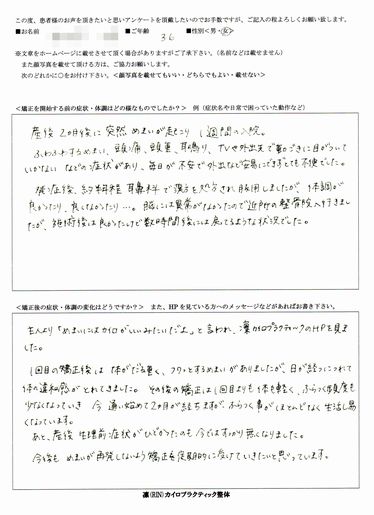 この度、患者様のお声を頂きたいと思いアンケートを頂戴したいのでお手数ですが、ご記入の程よろしくお願い致します。
■お名前 ■ご年齢 36 ■性別<男・女>
※文章をホームページに載せさせて頂く場合がありますがご了承下さい。(名前などは載せません)
また顔写真を載せて頂ける方は、ご協力お願いします。
次のどれかに○をお付け下さい。<顔写真を載せてもいい・どちらでもよい・載せない>
<矯正を開始する前の症状・体調はどの様なものでしたか?> 例(症状名や日常で困っていた動作など)
産後2か月後に突然めまいが起こり1週間の入院。
ふわふわするめまい、頭痛、頭重、耳鳴り、TVや外出先で動きに目がついて
いかない などの症状があり、毎日が不安で外出など安易にできずとても不便でした。
発症後、耳鼻科で漢方を処方され服用しましたが、体調が
良かったり、良くなかったり…。脳には異常がなかたので近所の整骨院へ行きまし
たが、施術後は良かたけど数時間後には戻てるような状況でした。
<矯正後の症状・体調の変化はどうですか?> また、HPを見ている方へのメッセージなどがあればお書き下さい。
主人より「めまいにはカイロがいいみたいだよ」と言われ、凛カイロプラクティックのHPを見ま
した。
1回目の矯正後は体がだる重く、フワッとするめまいがありましたが、日が経つにつれて
体の違和感がとれてきました。その後の矯正は1回目よりも体も軽く、ふらつく頻度も
少なくなっていき 今 通い始めて2か月が経ちますが、ふらつく事がほとんどなく生活し易
くなっています。
あと、産後 生理前症状がひどかたのも今ではすっかり無くなりました。
今後も めまいが再発しないよう矯正を定期的に受けていきたいと思っています。
凛(RIN)カイロプラクティック整体